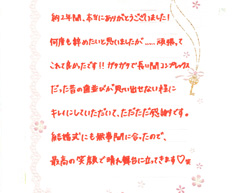 約2年間、本当にありがとうございました!
何度も辞めたいと思いましたが……頑張って
これて良かったです!!ガタガタで長い間コンプレックス
だった昔の歯並びが思い出せない程に
キレイにしていただいて、ただただ感謝です。
結婚式にも無事間に合ったので、
最高の笑顔で晴れ舞台に立ってきます♡